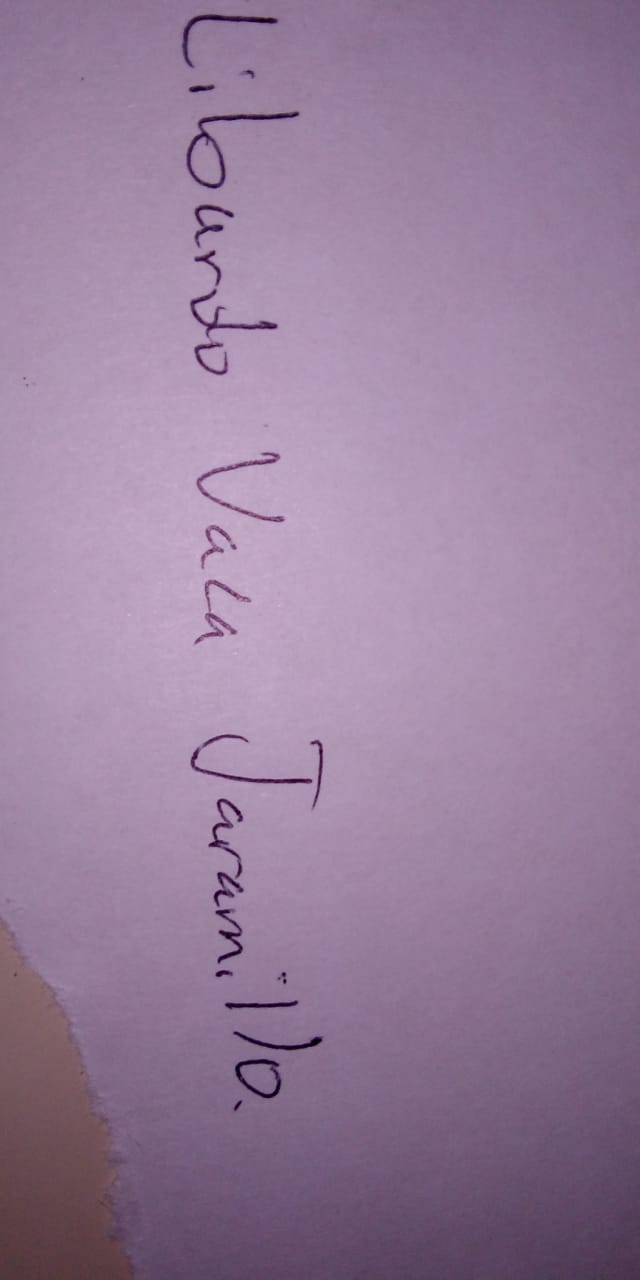 Libardo Vaca Jaramillo.